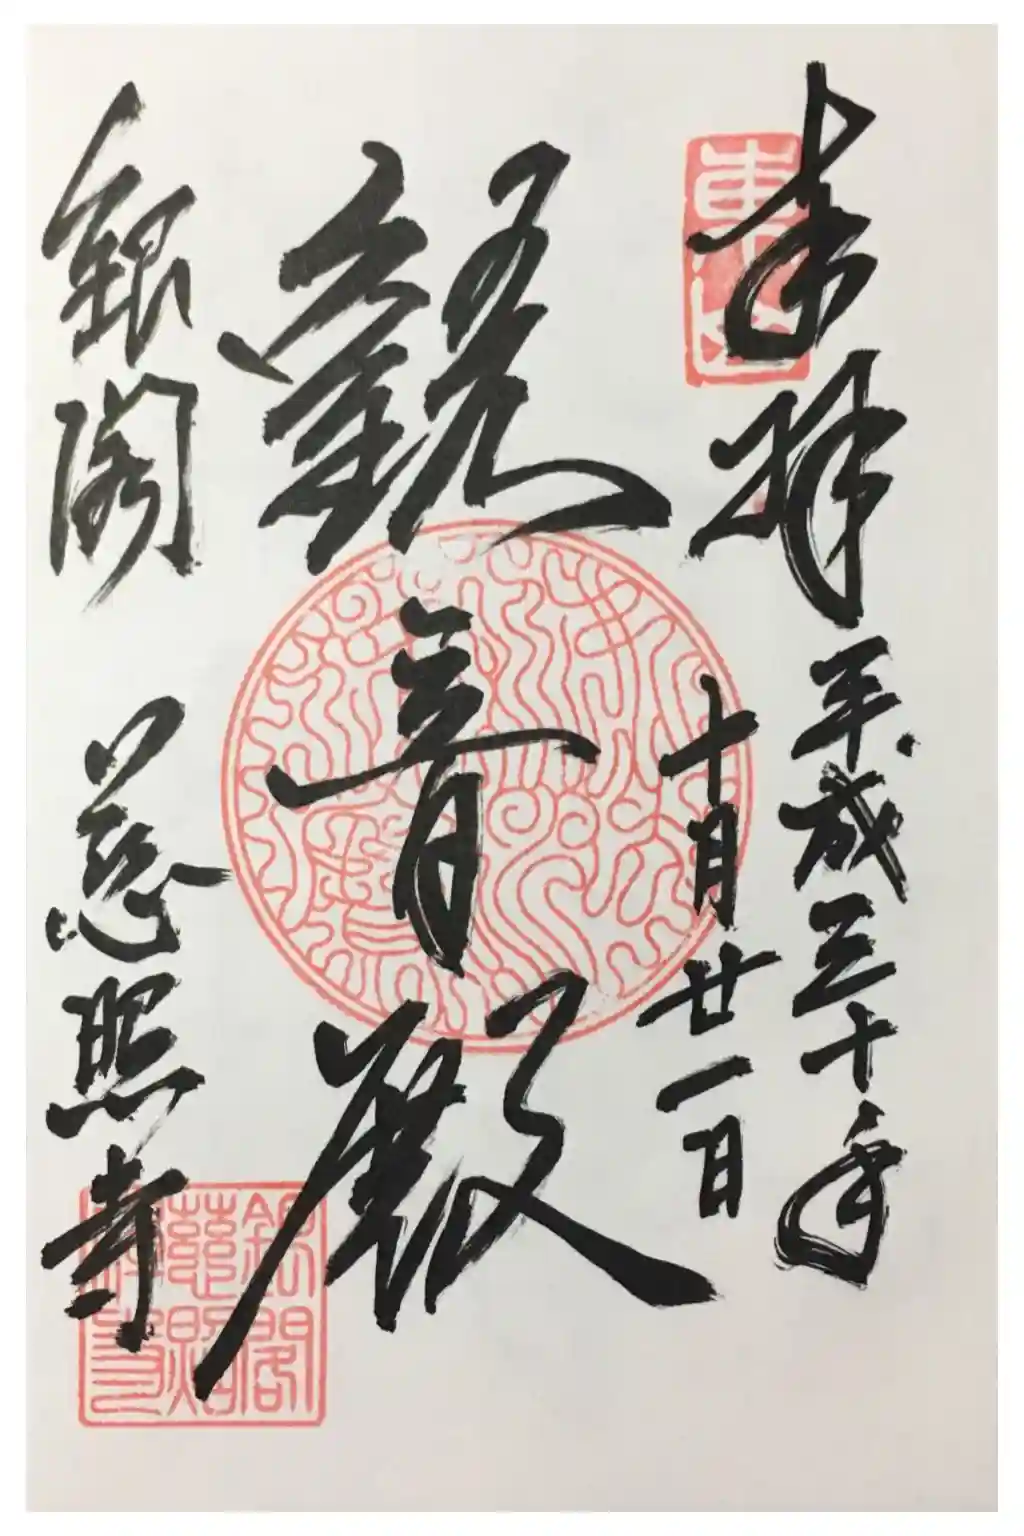 奉拝 平成三十年
十月廿一日
観音殿
銀閣 慈照寺
東山
銀閣
慈照
禅寺